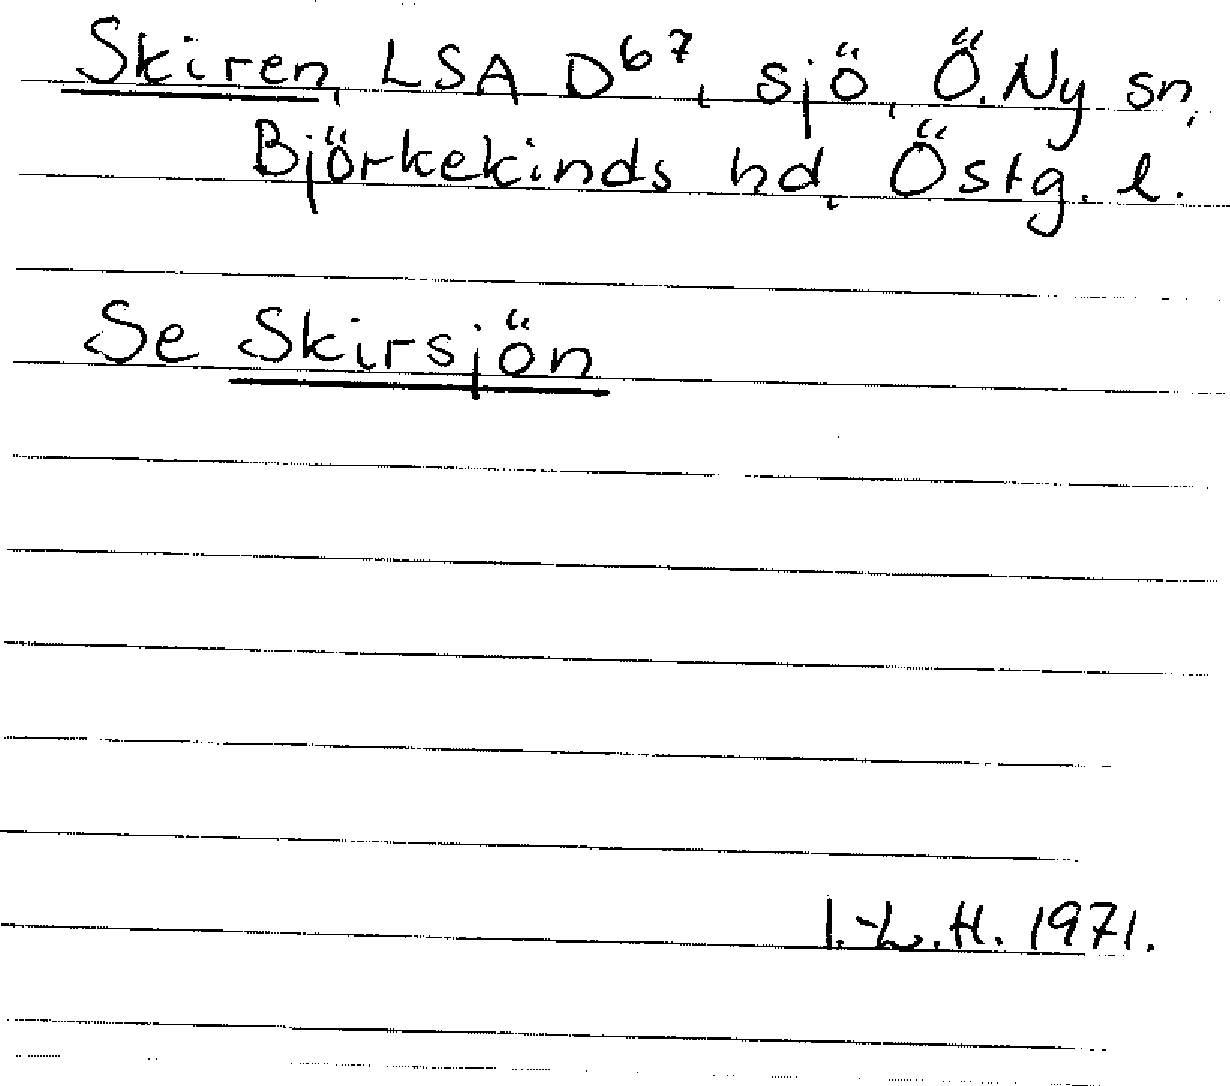 Skiren, LSA D67, sjö, Ö. Ny sn,
Björkekinds hd, Östg. l.
Se Skirsjön
I.-L.H. 1971.